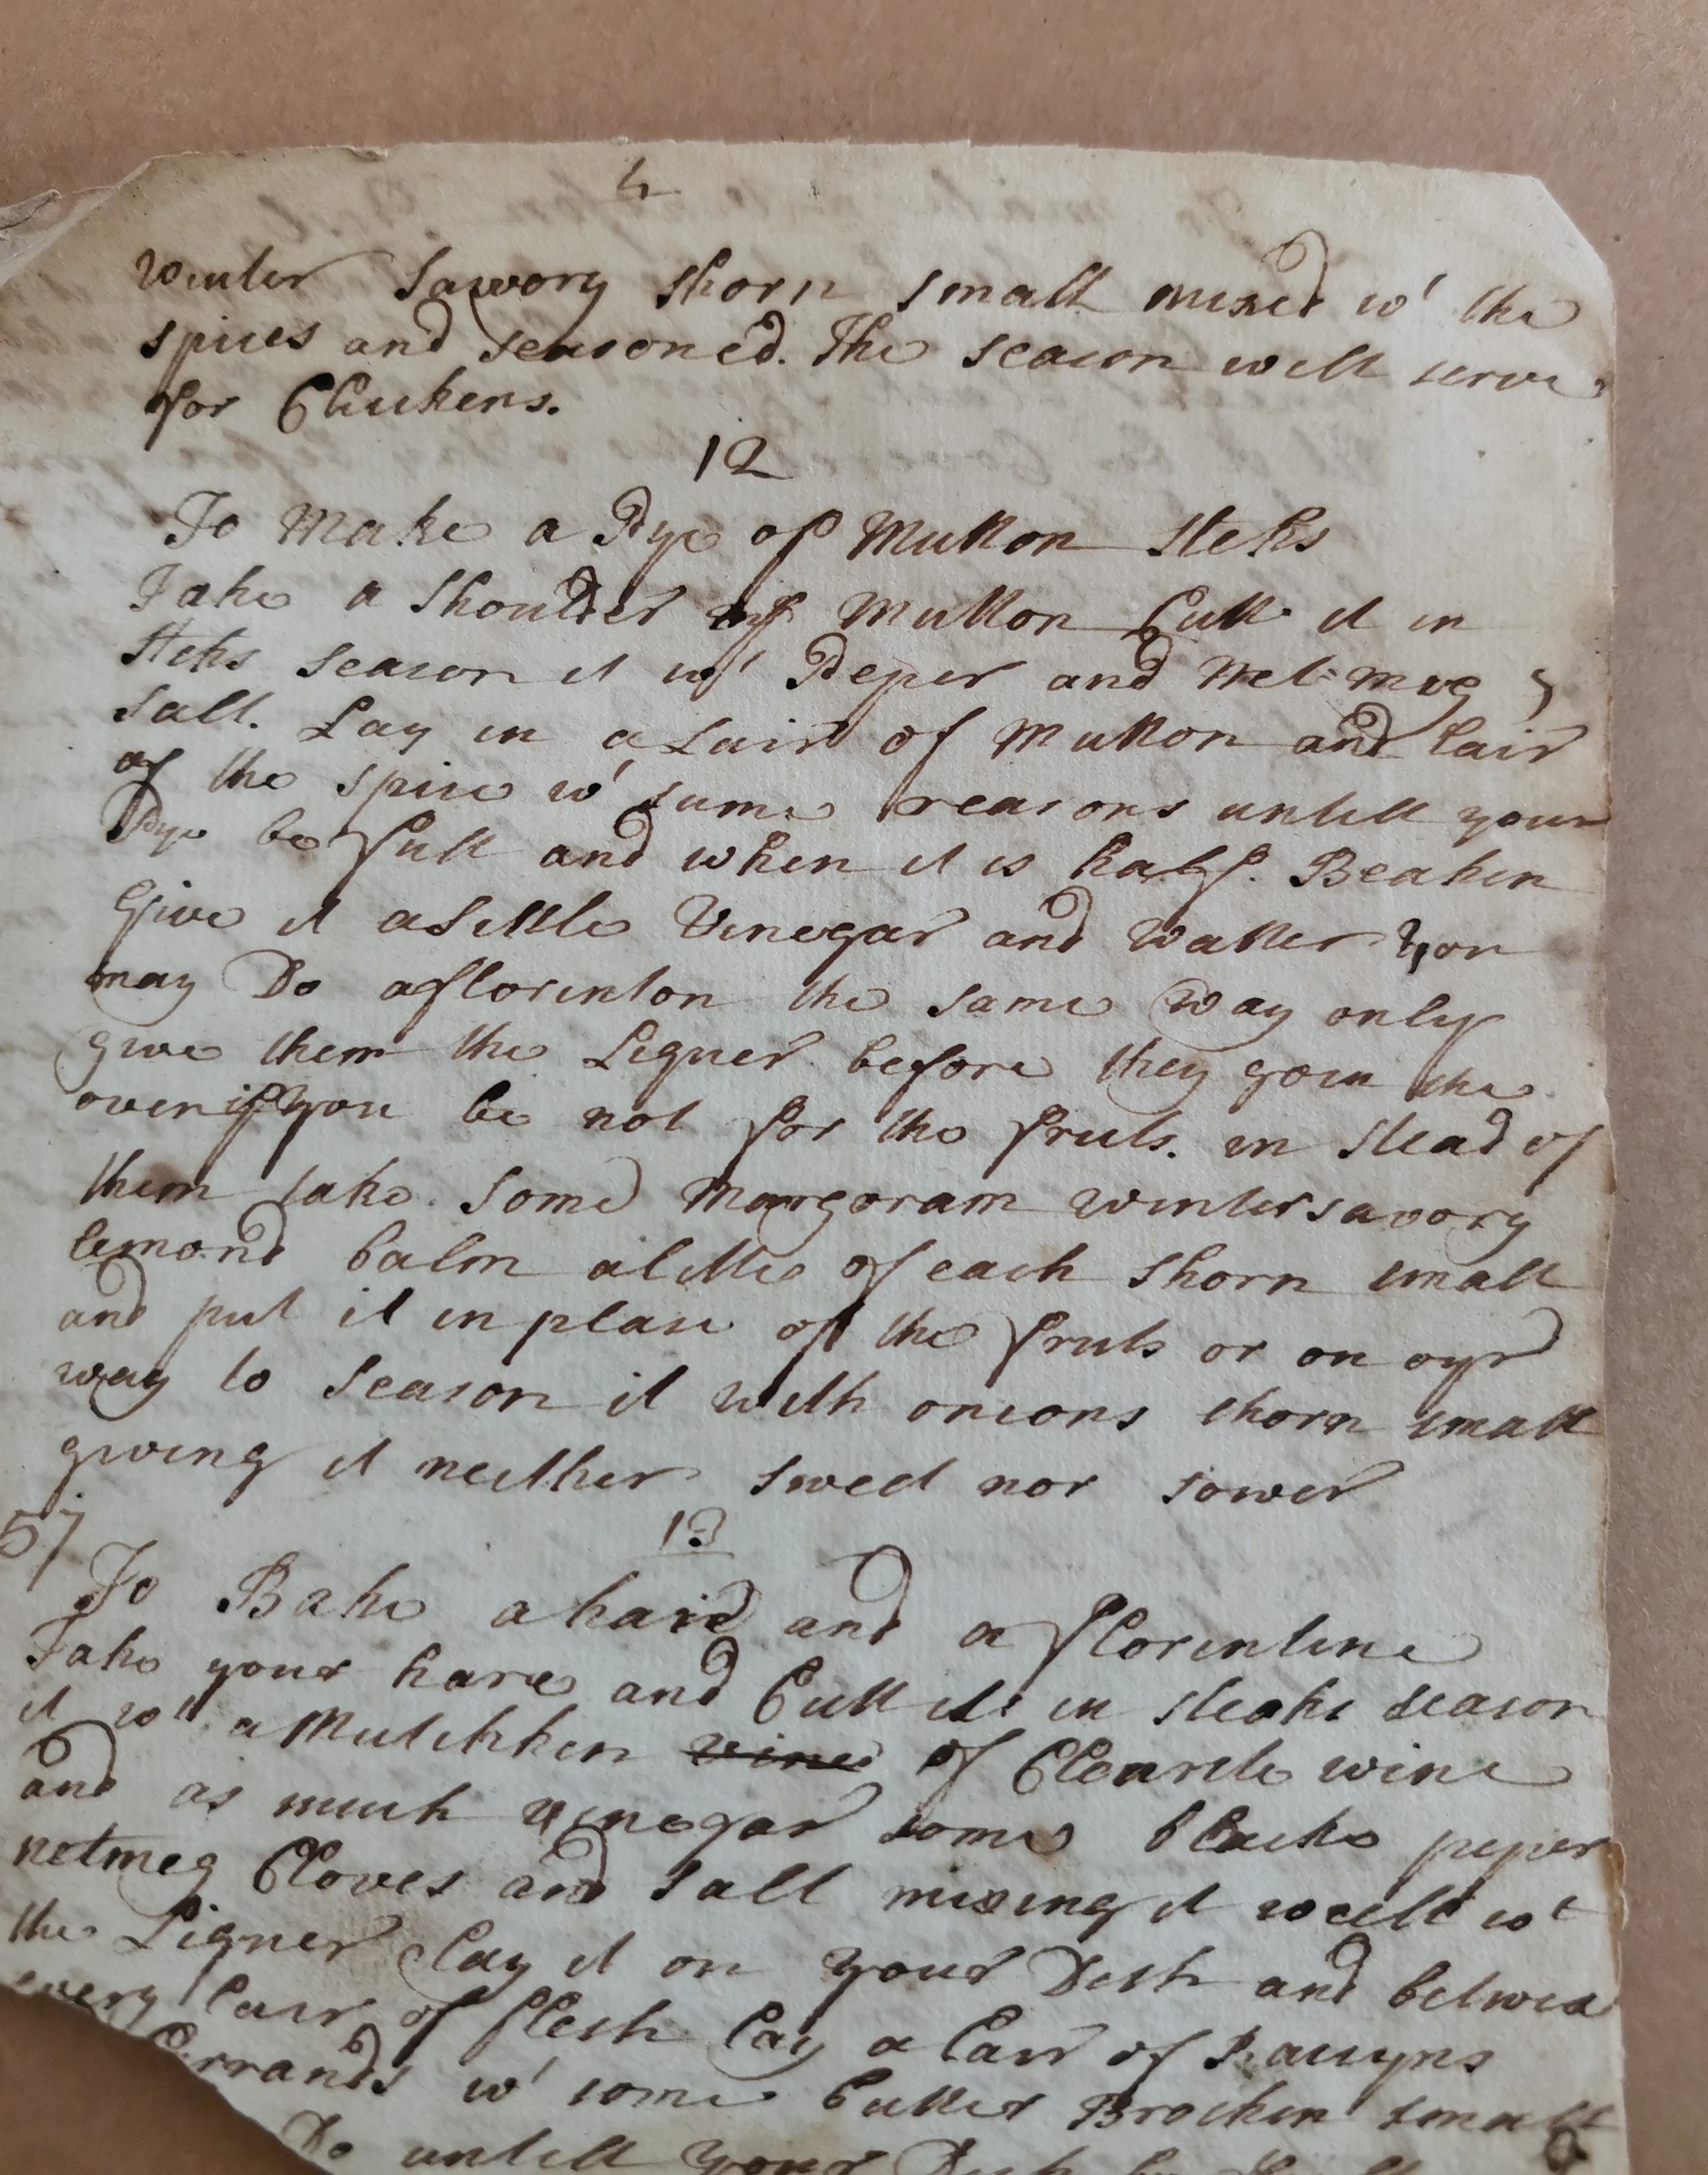 4
winter savory shorn small mixed wt the
spices and seasoned. The season will serve
for Chickens.
12
To Make a Pye of Mutton steks
Take a shoulder of Mutton Cutt it in
steks season it wt Peper and Netmug &
salt. Lay in a Lair of Mutton and lair
of the spice wt sume reasons untill your
Pye be full and when it is half. Beaken
Give it a Little Vinegar and watter you
may Do a florenton the same way only
give them the Liquer before they go in the
oven if you be not for the fruts. in stead of
them take some Margoram winter savory
lemond balm a little of each shorn small
and put it in plase of the fruts or on oyr
way to season it with onions shorn small
giving it neither sweet nor sower
57
13
To Bake a haire and a florentine
Take your hare and Cutt it in steaks season
it wt a Mutchken vine of Clearete wine
and as much vinegar some blacke peper
netmeg Cloves and salt mixing it weell wt
the Liquer Lay it on your Dish and betwixt
every lair of flesh lay a lair of Rasyns
Currands wt some butter Brocken small
Do untill your Dish be full